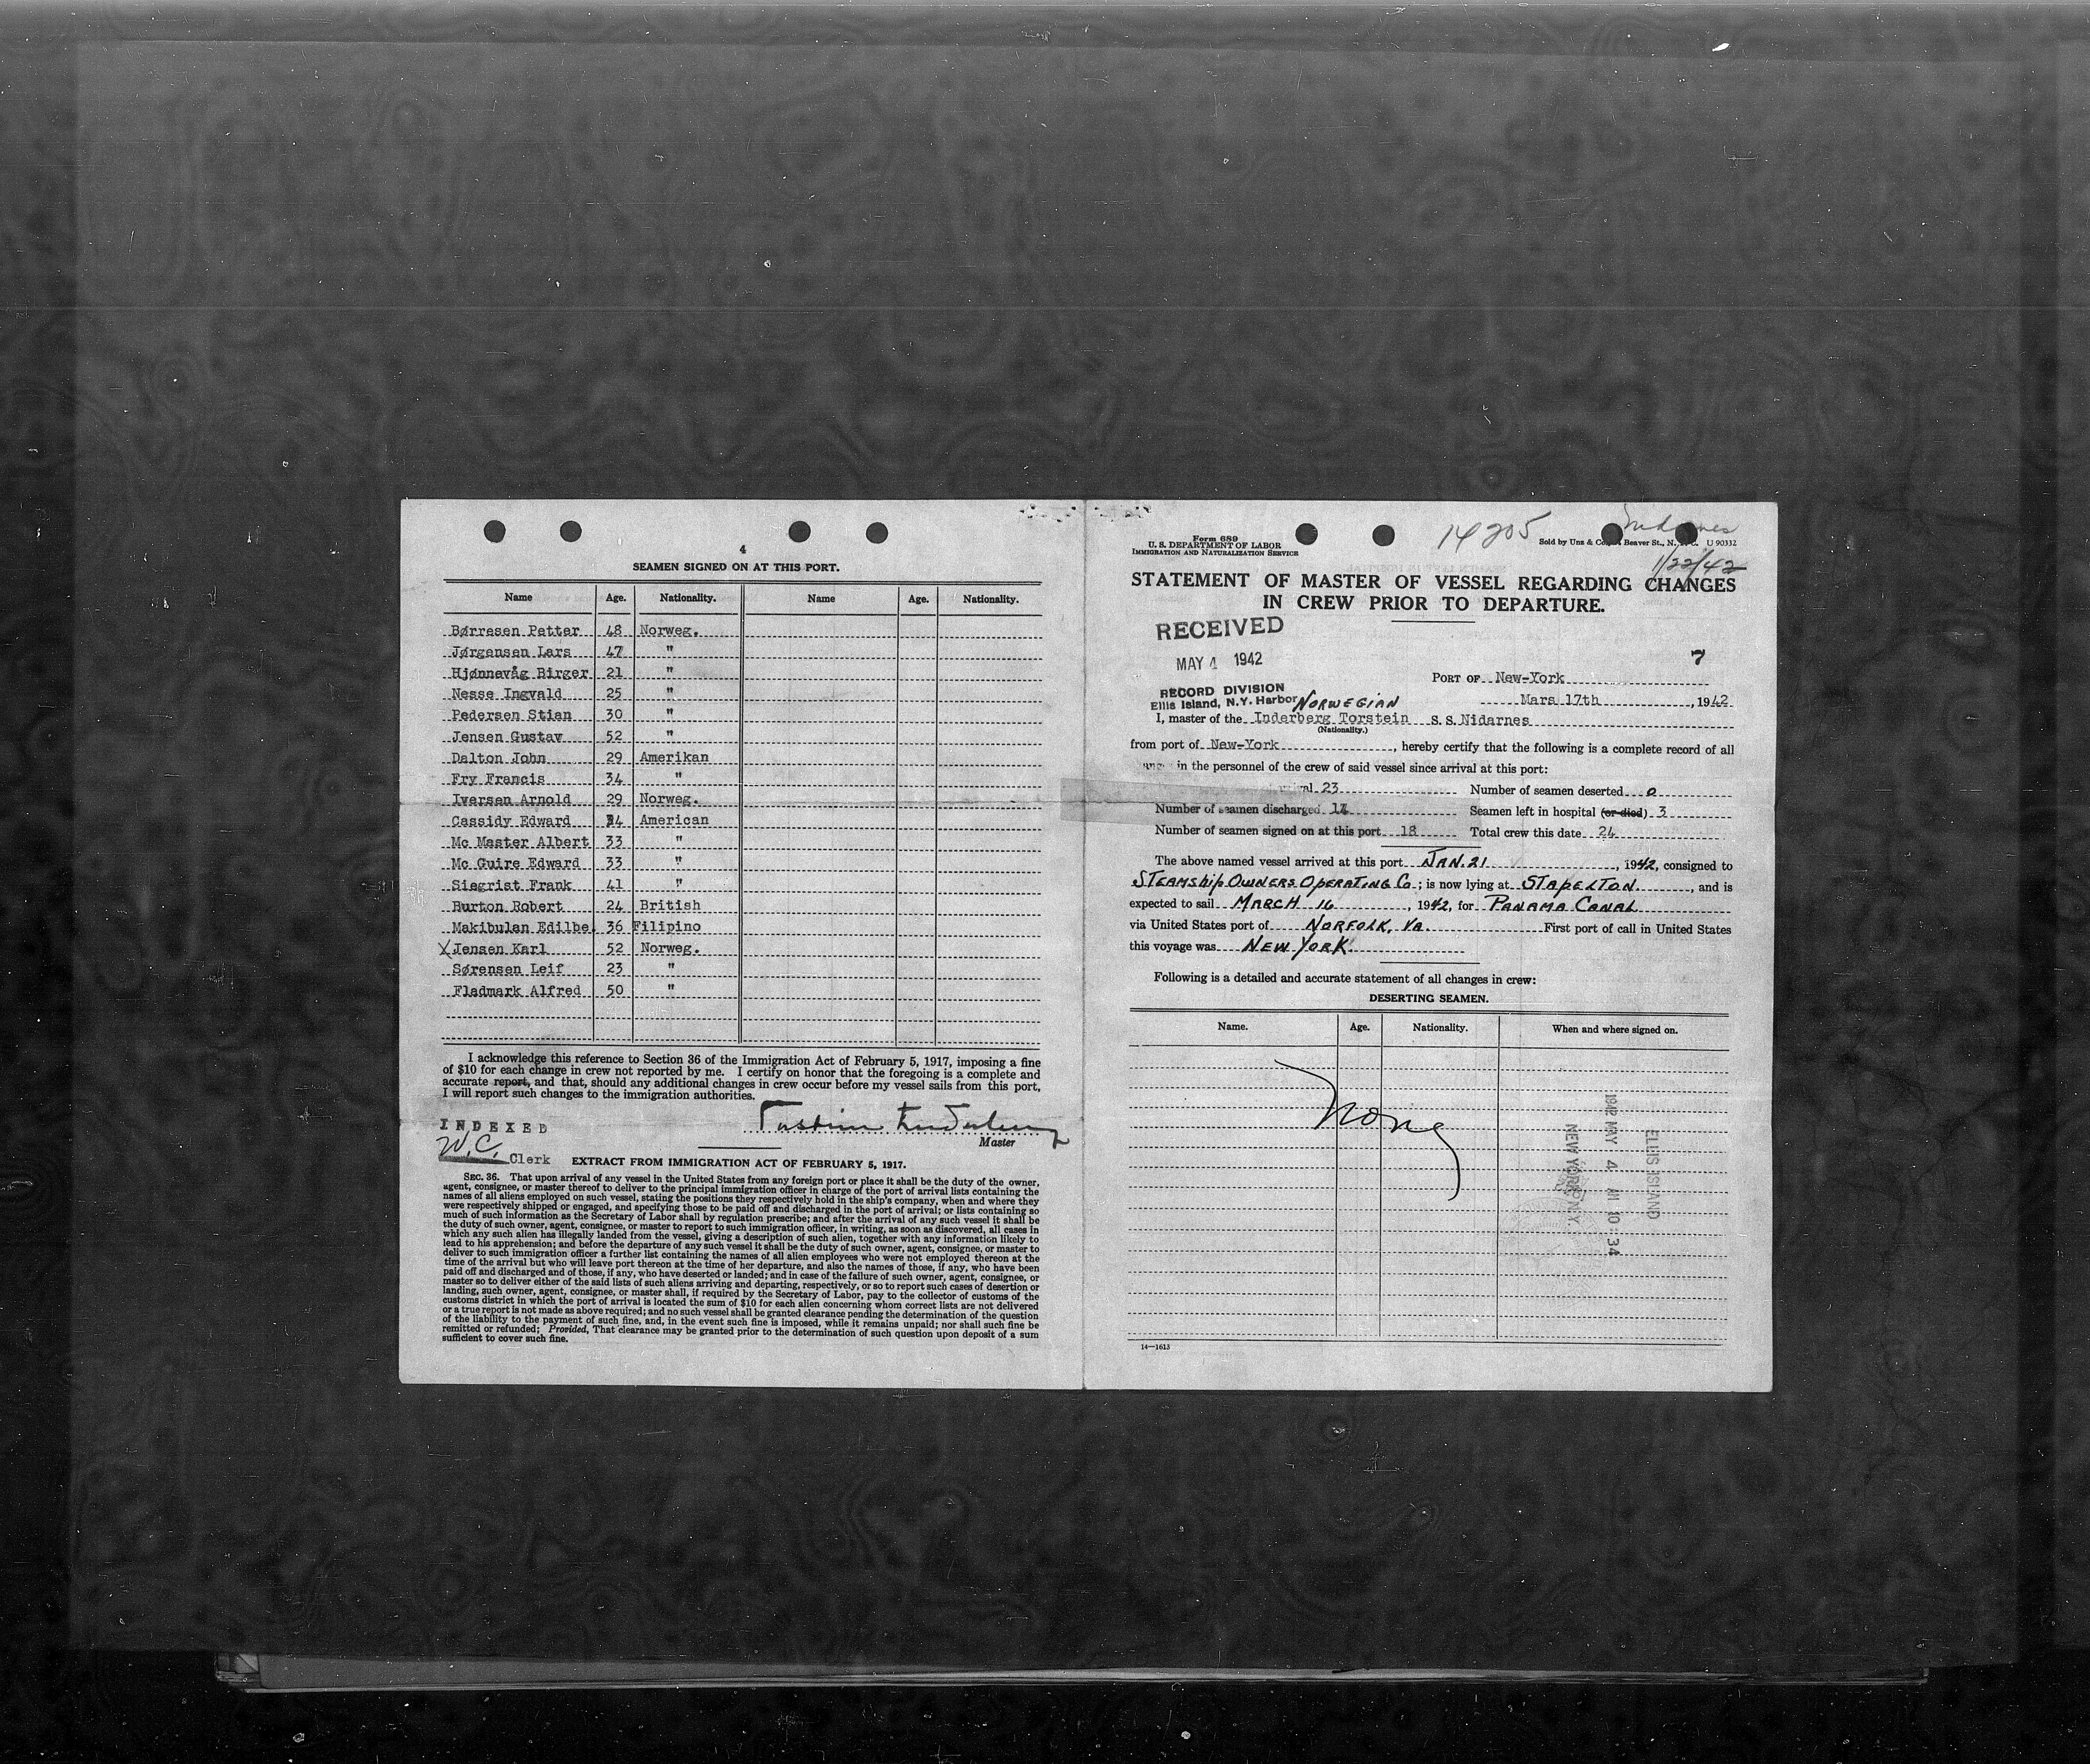 4
SEAMEN SIGNED ON AT THIS PORT.
Name Age. Nationality. Name Age. Nationality.
Børresen Petter 48 Norweg.
Jørgensen Lars 47 "
Hjønnevåg Birger 21 "
Nesse Ingvald 25 "
Pedersen Stian 30 "
Jensen Gustav 52 "
Dalton John 29 Amerikan
Fry Francis 34 "
Iversen Arnold 29 Norweg.
Cassidy Edward 24 American
Mc Master Albert 33 "
Mc Guire Edward 33 "
Siegrist Frank 41 "
Burton Robert 24 British
Makibulan Edilbe. 36 Filipino
X Jensen Karl 52 Norweg.
Sørensen Leif 23 "
Fladmark Alfred 50 "
I acknowledge this reference to Section 36 of the Immigration Act of February 5, 1917, imposing a fine
of $10 for each change in crew not reported by me. I certify on honor that the foregoing is a complete and
accurate report, and that, should any additional changes in crew occur before my vessel sails from this port,
I will report such changes to the immigration authorities.
INDEXED
Master
W.C. Clerk
EXTRACT FROM IMMIGRATION ACT OF FEBRUARY 5, 1917.
SEC. 36. That upon arrival of any vessel in the United States from any foreign port or place it shall be the duty of the owner,
agent, consignee, or master thereof to deliver to the principal immigration officer in charge of the port of arrival lists containing the
names of all aliens employed on such vessel, stating the positions they respectively hold in the ship's company, when and where they
were respectively shipped or engaged, and specifying those to be paid off and discharged in the port of arrival; or lists containing so
much of such information as the Secretary of Labor shall by regulation prescribe; and after the arrival of any such vessel it shall be
the duty of such owner, agent, consignee, or master to report to such immigration officer, in writing, as soon as discovered, all cases in
which any such alien has illegally landed from the vessel, giving a description of such alien, together with any information likely to
lead to his apprehension; and before the departure of any such vessel it shall be the duty of such owner, agent, consignee, or master to
deliver to such immigration officer a further list containing the names of all alien employees who were not employed thereon at the
time of the arrival but who will leave port thereon at the time of her departure, and also the names of those, if any, who have been
paid off and discharged and of those, if any, who have deserted or landed; and in case of the failure of such owner, agent, consignee, or
master so to deliver either of the said lists of such aliens arriving and departing, respectively, or so to report such cases of desertion or
landing, such owner, agent, consignee, or master shall, if required by the Secretary of Labor, pay to the collector of customs of the
customs district in which the port of arrival is located the sum of $10 for each alien concerning whom correct lists are not delivered
or a true report is not made as above required; and no such vessel shall be granted clearance pending the determination of the question
of the liability to the payment of such fine, and, in the event such fine is imposed, while it remains unpaid; nor shall such fine be
remitted or refunded; Provided, That clearance may be granted prior to the determination of such question upon deposit of a sum
sufficient to cover such fine.
Form 689
U. S. DEPARTMENT OF LABOR
IMMIGRATION AND NATURALIZATION SERVICE
14205
Sold by Unz & Co., Beaver St., N. Y. C. U 90332
1/22/42
STATEMENT OF MASTER OF VESSEL REGARDING CHANGES
IN CREW PRIOR TO DEPARTURE.
RECEIVED
MAY 4 1942
RECORD DIVISION
Ellis Island, N.Y. Harbor
7
PORT OF New-York
Mars 17th, 1942
NORWEGIAN
I, master of the Inderberg Torstein S.S. Nidarnes
(Nationality.)
from port of New-York, hereby certify that the following is a complete record of all
in the personnel of the crew of said vessel since arrival at this port:
23 Number of seamen deserted 0
Number of seamen discharged 14 Seamen left in hospital (or died) 3
Number of seamen signed on at this port 18 Total crew this date 24
The above named vessel arrived at this port JAN. 21, 1942, consigned to
STEAMSHIP OWNERS OPERATING Co; is now lying at STAPELTON, and is
expected to sail MARCH 16, 1942, for PANAMA CANAL
via United States port of NORFOLK, VA. First port of call in United States
this voyage was NEW YORK
Following is a detailed and accurate statement of all changes in crew:
DESERTING SEAMEN.
Name. Age. Nationality. When and where signed on.
None
1942 MAY 4 AM 10:34
NEW YORK, N.Y.
ELLIS ISLAND
14—1613